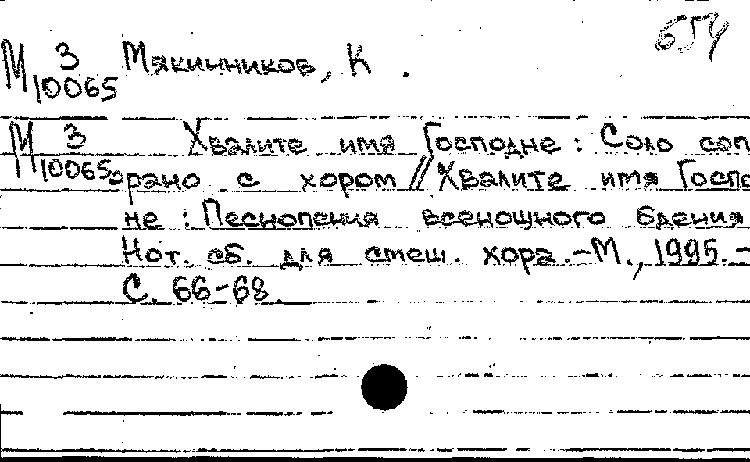 654
М 3 Мякинников, К .
10065
М 3 Хвалите имя Господне : Соло соп
10065 рано с хором // Хвалите имя Госпо
не : Песнопения всенощного бдения
Нот. сб. для смеш. хора.-М., 1995.-
С. 66-68.